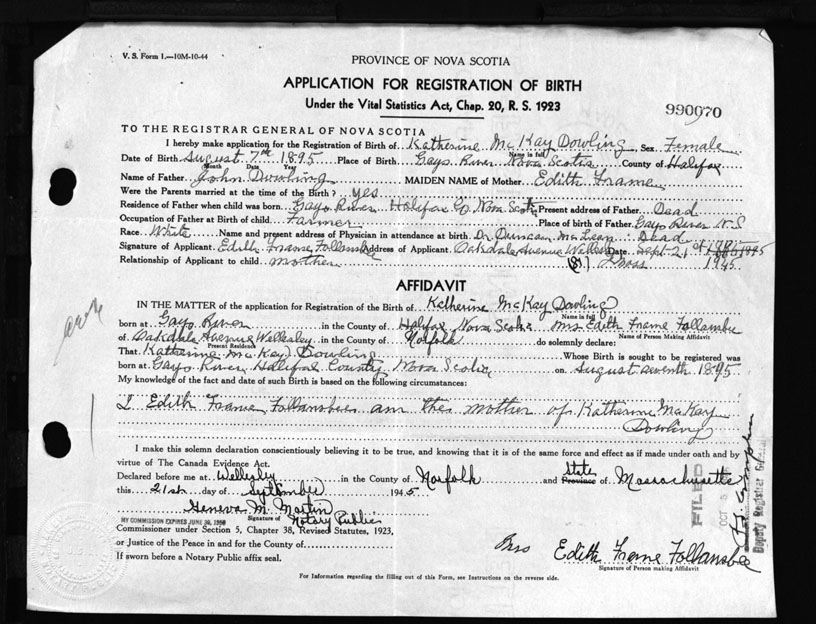 V. S. Form 1.—10M-10-44
PROVINCE OF NOVA SCOTIA
APPLICATION FOR REGISTRATION OF BIRTH
Under the Vital Statistics Act, Chap. 20, R. S. 1923
990070
TO THE REGISTRAR GENERAL OF NOVA SCOTIA
I hereby make application for the Registration of Birth of Katherine McKay Dowling Sex Female
Name in full
Date of Birth August 7th 1895 Place of Birth Gays River Nova Scotia County of Halifax
Month Date Year
Name of Father John Dowling MAIDEN NAME of Mother Edith Frame
Were the Parents married at the time of the Birth? yes
Residence of Father when child was born Gays River Halifax Co Nova Scotia Present address of Father Dead
Occupation of Father at Birth of child Farmer Place of birth of Father Gays River N.S
Race White Name and present address of Physician in attendance at birth Dr Duncan McLean : Dead
Signature of Applicant Edith Frame Follansbee Address of Applicant Oakdale Avenue Wellesley Date Sept. 21
Relationship of Applicant to child mother (87) Mass 1945
AFFIDAVIT
IN THE MATTER of the application for Registration of the Birth of Katherine McKay Dowling
Name in full
born at Gays River in the County of Halifax Nova Scotia Mrs Edith Frame Follansbee
Name of Person Making Affidavit
of Oakdale Avenue Wellesley in the County of Norfolk do solemnly declare:
Present Residence
That Katherine McKay Dowling Whose Birth is sought to be registered was
born at Gays River Halifax County Nova Scotia on August seventh 1895
My knowledge of the fact and date of such Birth is based on the following circumstances:
I Edith Frame Follansbee am the mother of Katherine McKay
Dowling
I make this solemn declaration conscientiously believing it to be true, and knowing that it is of the same force and effect as if made under oath and by
virtue of The Canada Evidence Act.
Declared before me at Wellesley in the County of Norfolk and State Province of Massachusetts
this 21st day of September 1945
Geneva M. Martin
MY COMMISSION EXPIRES JUNE 30, 1950 Signature of Notary Public
Commissioner under Section 5, Chapter 38, Revised Statutes, 1923,
or Justice of the Peace in and for the County of
If sworn before a Notary Public affix seal.
Mrs Edith Frame Follansbee
Signature of Person making Affidavit
For Information regarding the filling out of this Form, see Instructions on the reverse side.
FILED
OCT 5
Deputy Registrar General